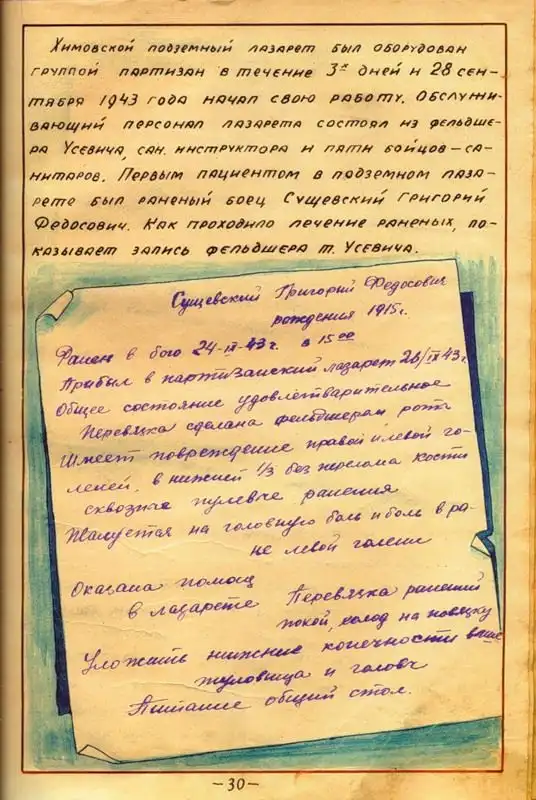 Химовской подземный лазарет был оборудован
группой партизан в течение 3х дней и 28 сен-
тября 1943 года начал свою работу. Обслужи-
вающий персонал лазарета состоял из фельдше-
ра Усевича, сан. инструктора и пяти бойцов-са-
нитаров. Первым пациентом в подземном лаза-
рете был раненый боец Сущевский Григорий
Федосович. Как проходило лечение раненых, по-
казывает запись фельдшера т. Усевича.
Сущевский Григорий Федосович
рождения 1915г.
Ранен в бою 24-IX-43г. в 15 00
Прибыл в партизанский лазарет 28/IX 43г.
Общее состояние удовлетварительное
Перевязка сделана фельдшерам роты
Имеет повреждение правой и левой го-
леней, в нижней 1/3 без перелома кости
сквозные пулевые ранения
Жалуется на головную боль и боль в ра-
не левой голени
Оказана помощ
в лазарете Перевязка ранений
покой, холод на повязку
Уложить нижние конечности выше
туловища и головы
Питание общий стол.
-30-